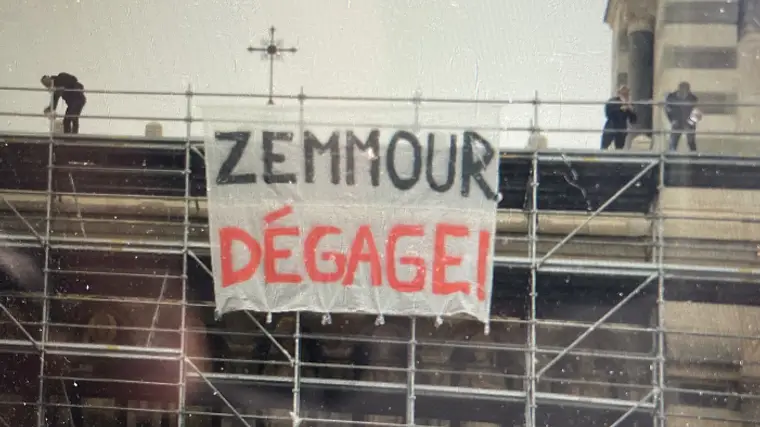 ZEMMOUR
DÉGAGE!